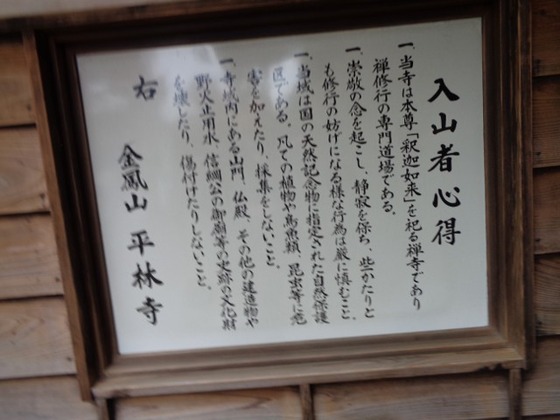 入山者心得
一、当寺は本尊「釈迦如来」を祀る禅寺であり
禅修行の専門道場である。
一、崇敬の念を起こし、静寂を保ち、些かたりと
も修行の妨げになる様な行為は厳に慎むこと。
一、当域は国の天然記念物に指定された自然保護
区である。凡ての植物や鳥獣類、昆虫等に危
害を加えたり、採集をしないこと。
一、寺域内にある山門、仏殿、その他の建造物や
野火止用水、信綱公の御廟等の史跡の文化財
を壊したり、傷付けたりしないこと。
右
金鳳山 平林寺